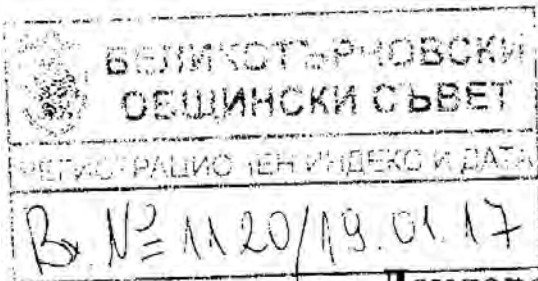 ВЕЛИКОТЪРНОВСКИ
ОБЩИНСКИ СЪВЕТ
РЕГИСТРАЦИОНЕН ИНДЕКС И ДАТА
Вх. № 1120/19.01.17